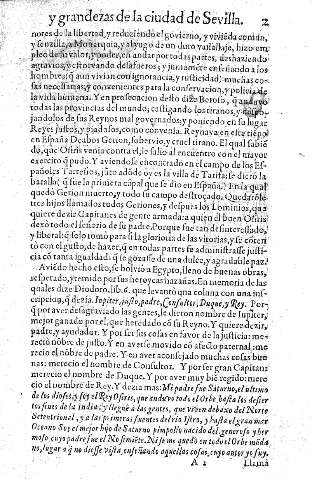 y grandezas de la ciudad de Sevilla. 2
notos de la libertad, y reduziendo el govierno, y vivienda comun,
y senzilla, a Monarquia, al yugo de un duro vassallaje, hizo em-
pleo de su valor, y poder, en andar por todas partes, deshaziendo
agravios, y estorvando desafueros; y juntamente enseñando a los
hombres (q̃ aun vivian con ignorancia, y rusticidad) muchas co-
sas necessarias, y convenientes para la conservacion, y policia de
la vida humana. Y en prosecucion desto dize Beroso, q̃ anduvo
todas las provincias del mundo, castigando los tiranos, y
jandolos de sus Reynos mal governados, y poniendo en su lugar
Reyes justos, y piadosos, como convenia. Reynava en este tiẽpo
en España Deabos Gerion, sobervio, y cruel tirano. El qual sabiẽ
do, que Osiris venia contra el, le salio al encuentro con el mayor
exercito q̃ pudo. Y aviendose encontrado en el campo de los Es-
pañoles Tartesios, jũto adõde oy es la villa de Tarifa, se dierõ la
batalla, q̃ fue la primera cãpal que se dio en España. En la qual
quedò Gerion muerto, y todo su campo destroçado. Quedarõle
tres hijos llamados todos Geriones, y despues los Lominios, que
quiere dezir Capitanes de gente armada: a quien el buen Osiris
dexò todo el señorio de su padre. Porque fue tan desinteressado,
y liberal, q̃ solo tomò para si la gloria de las vitorias, y se cõten-
tò con el gusto, de hazer, q̃ en todas partes se administrasse justi-
cia cõ tanta igualdad: q̃ se gozasse de una dulce, y agradable paz.
Aviẽdo hecho esto, se bolvio a Egypto, lleno de buenas obras,
respetado, y temido por sus heroycas hazañas. En memoria de las
quales dize Diodoro, lib. 6. que levantò una coluna con una ins-
cripcion, q̃ dezia. Iupiter, justo, padre, Consultor, Duque, y Rey. Por-
q̃ por aver desagraviado las gentes, le dieron nombre de Iupiter,
mejor ganado por el, que heredado cõ su Reyno. Y quiere dezir,
padre, y ayudador. Y por ser sus cosas en favor de la justicia: me-
reciò nõbre de justo. Y en averse movido cõ afecto paternal: me-
recio el nõbre de padre. Y en aver aconsejado muchas cosas bie-
nas: merecio el nombre de Consultor. Y por ser gran Capitan:
merecio el nombre de Duque. Y por aver muy biẽ regido: mere-
cio el nombre de Rey. Y dezia mas: Mi padre fue Saturno, el ultimo
de los dioses, y soy el Rey Osiris, que anduvo todo el Orbe hasta los deser-
tos fines de la India: y llegué a las gentes, que viven debaxo del Norte
Setentrional, y a las primeras fuentes del rio Istro, y hasta el gran mar
Oceano. Soy el mejor hijo de Saturno pimpollo nacido del, generoso y her
moso, cuyo padre fue el No simiẽte. Ni se me quedò en todo el Orbe nada
no, lugar o q̃ no diesse vista, enseñando aquellas cosas, cuyo autor yo fuy.
A 2 Llama